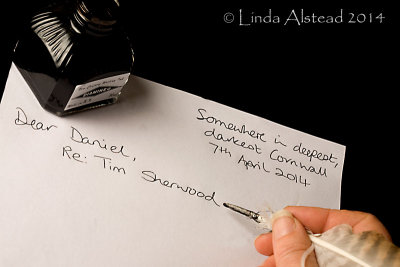 © Linda Alstead 2014
Somewhere in deepest,
darkest Cornwall
7th April 2014
Dear Daniel,
Re: Tim Sherwood